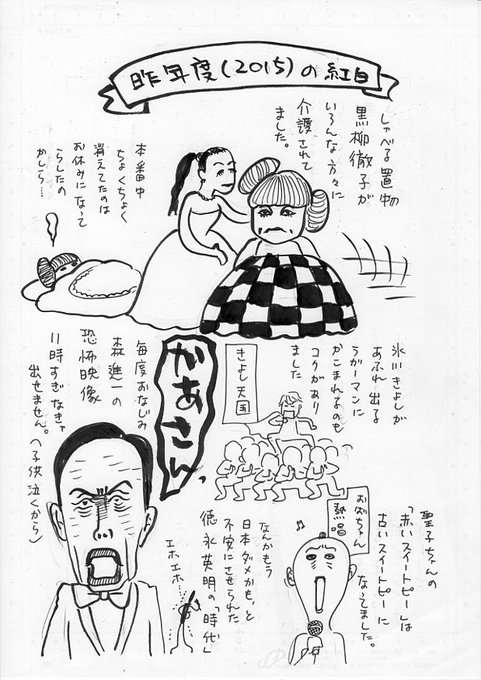 昨年度(2015)の紅白
しゃべる置物
黒柳徹子が
いろんな方々に
介護されて
ました。
本番中
ちょくちょく
消えてたのは
お休みになって
らしたの
かしら…
氷川きよしが
あふれ出る
らガーマンに
かこまれるのも
コクがあり
ました
きよし天国
かあさんっ
毎度おなじみ
森進一の
恐怖映像
11時すぎなきゃ
出せません。(子供泣くから)
聖子ちゃんの
「赤いスイートピー」は
古いスイートピーに
なってました。
おばちゃん
熱唱
なんかもう
日本ダメかも、と
不安にさせられた
徳永英明の「時代」
エホエホ…